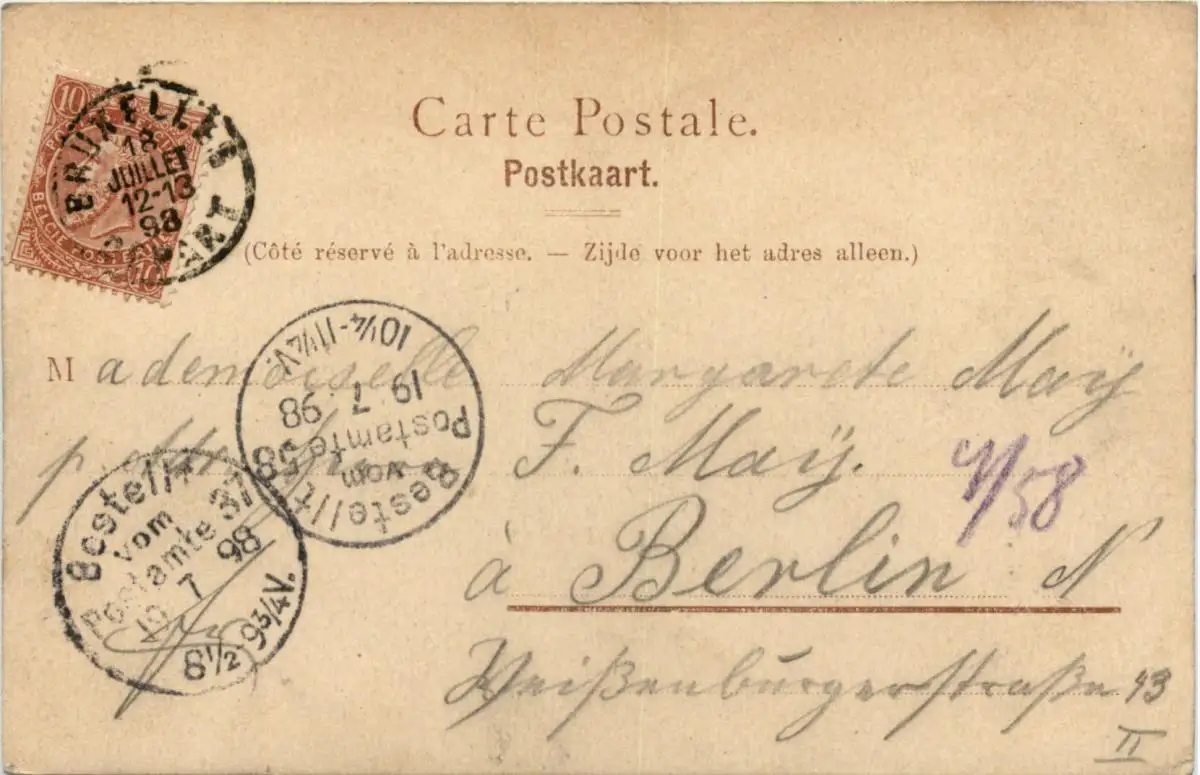 Carte Postale.
Postkaart.
(Côté réservé à l'adresse. — Zijde voor het adres alleen.)
10
BRUXELLES
18
JUILLET
12-13
98
BELGIE
10
Mademoiselle Margarete Maÿ
F. Maÿ.
à Berlin N
Weißenburgerstraße 43
II
Bestellt
vom
Postamte
58
19 7 98
10¼-11¼V.
Bestellt
vom
Postamte 37
19 7 98
8½-9¾V.
/58